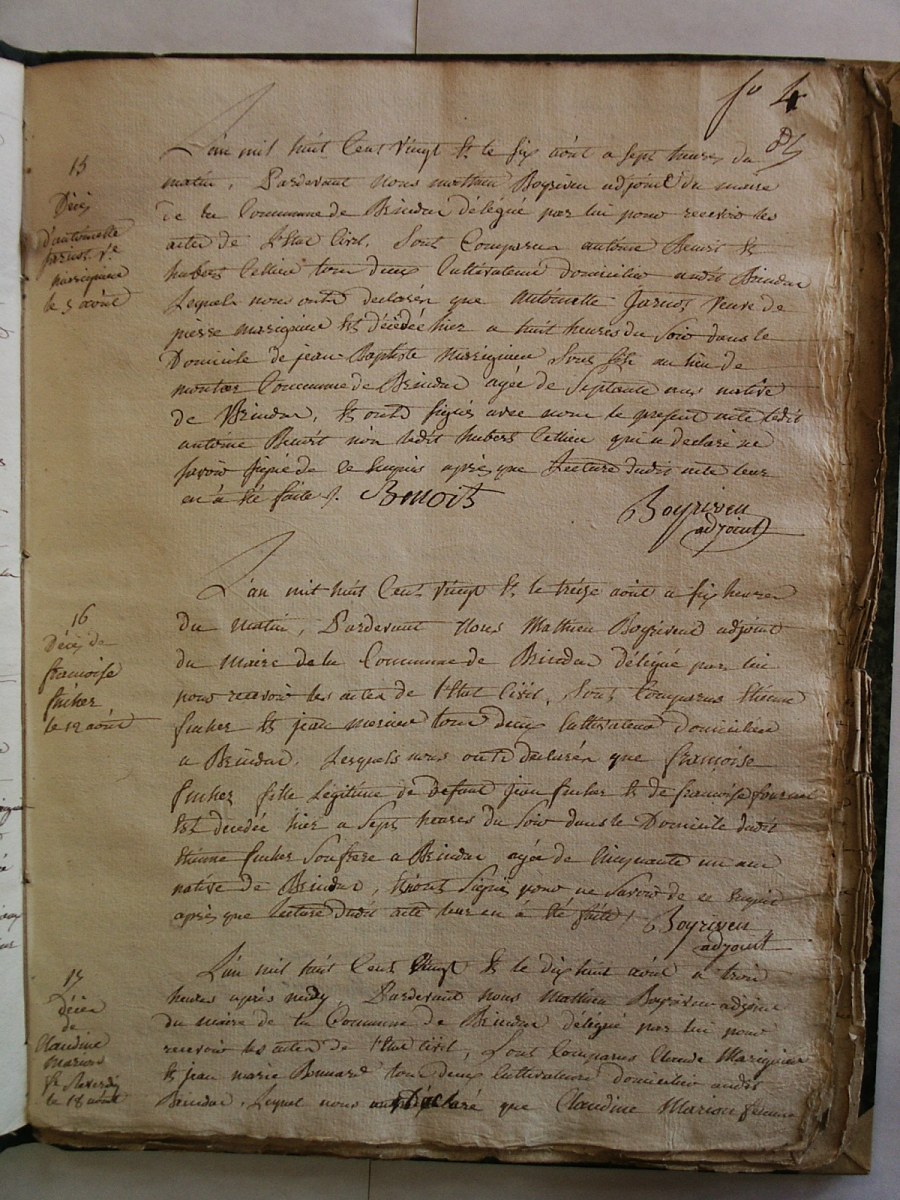 fo 4
15
Décès
d'antoinette
jarnot ve
marsigniene
le 5 août
L'an mil huit Cens vingt Et le six août a sept heures du
matin, Pardevant nous mathieu Boyriven adjoint du maire
de la Commune de Brindas délégué par lui pour recevoir les
actes de l'Etat Civil, Sont Comparus antoine Benoit Et
hubert Cellieu tous deux Cultivateurs domiciliés audit Brindas
Lequels nous ont déclarés que Antoinette Jarnot, veuve de
pierre Et décédée hier a huit heures du Soir dans le
Domicile de jean-Baptiste Son fils au lieu de
Commune de Brindas agée de Septante ans native
de Brindas, Et ont signés avec nous le present acte ledit
antoine Benoit non ledit hubert Cellieu qui a declaré ne
savoir signé de ce enquis après que Lecture dudit acte leur
en a été faite. Benoit
Boyriven
adjoint
16
Décès de
francoise
le 12 août
L'an mil huit Cens vingt Et le treize août a six heures
du matin, Pardevant Nous Mathieu Boyriven adjoint
du Maire de la Commune de Brindas délégué par lui
pour recevoir les actes de l'Etat Civil, Sont Comparus Etienne
Et jean mornieu tous deux Cultivateurs domiciliés
a Brindas, Lesquels nous ont déclarés que francoise
fille Légitime de defunt jean Et de francoise fournel
Est décedée hier a Sept heures du Soir dans le Domicile dudit
Etienne Son frere a Brindas agée de Cinquante un ans
native de Brindas, Signés pour ne Savoir de ce enquis
après que lecture dudit acte leur en a été faite. Boyriven
adjoint
17
Décès
de
Claudine
Marion
le 18 août
L'an mil huit Cens Vingt Et le dix huit août a trois
heures après midy, Pardevant nous Mathieu Boyriven adjoint
du maire de la Commune de Brindas délégué par lui pour
recevoir les actes de l'Etat Civil, Sont Comparus Claude
Et jean marie Bonnard tous deux Cultivateurs domiciliés audit
Brindas, Lequel nous ont Déclaré que Claudine Marion femme